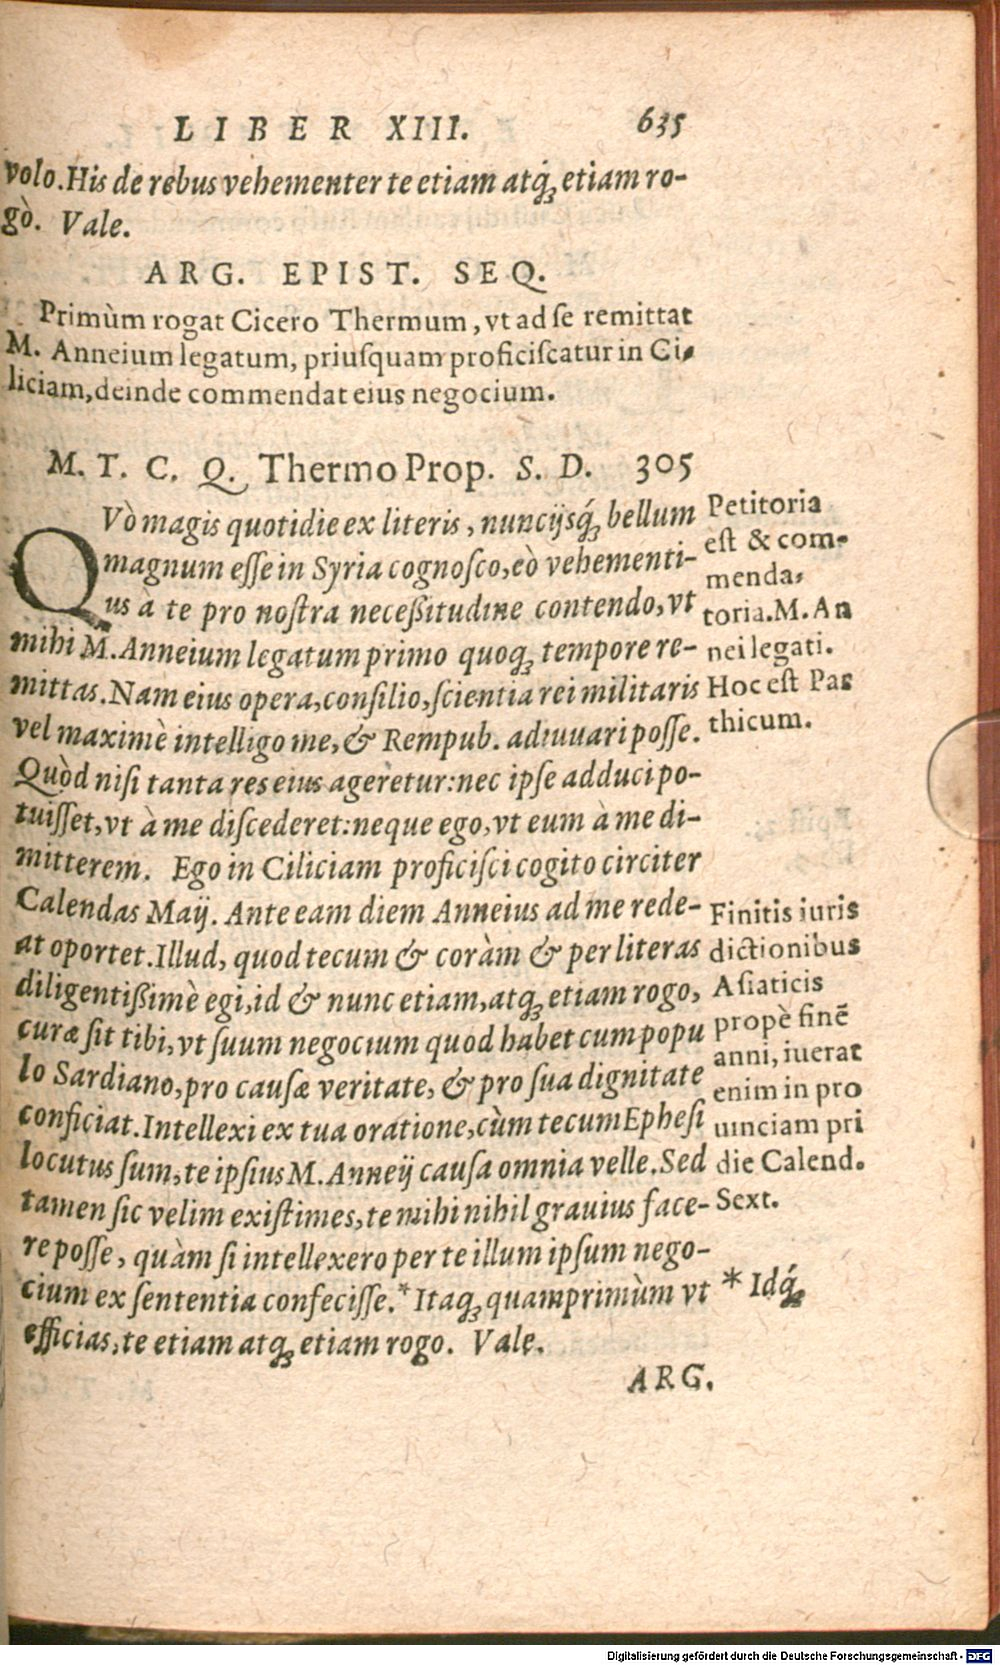 LIBER XIII. 635
volo. His de rebus vehementer te etiam atq́ꝫ etiam ro-
gò. Vale.
ARG. EPIST. SEQ.
Primùm rogat Cicero Thermum, vt ad ſe remittat
M. Anneium legatum, priuſquam proficiſcatur in Ci-
liciam, deinde commendat eius negocium.
M. T. C. Q. Thermo Prop. S. D. 305
QVò magis quotidie ex literis, nuncijsq́ꝫ bellum
magnum eſſe in Syria cognoſco, eò vehementi-
us à te pro noſtra neceßitudine contendo, vt
mihi M. Anneium legatum primo quoqꝫ tempore re-
mittas. Nam eius opera, conſilio, ſcientia rei militaris
vel maximè intelligo me, & Rempub. adiuuari poſſe.
Quòd niſi tanta res eius ageretur: nec ipſe adduci po-
tuiſſet, vt à me diſcederet: neque ego, vt eum à me di-
mitterem. Ego in Ciliciam proficiſci cogito circiter
Calendas Maij. Ante eam diem Anneius ad me rede-
at oportet. Illud, quod tecum & coràm & per literas
diligentißimè egi, id & nunc etiam, atqꝫ etiam rogo,
curæ ſit tibi, vt ſuum negocium quod habet cum popu
lo Sardiano, pro cauſæ veritate, & pro ſua dignitate
conficiat. Intellexi ex tua oratione, cùm tecum Epheſi
locutus ſum, te ipſius M. Anneij cauſa omnia velle. Sed
tamen ſic velim exiſtimes, te mihi nihil grauius face-
re poſſe, quàm ſi intellexero per te illum ipſum nego-
cium ex ſententia confeciſſe.* Itaqꝫ quamprimùm vt
efficias, te etiam atqꝫ etiam rogo. Vale.
ARG.
Petitoria
eſt & com-
menda-
toria. M. An
nei legati.
Hoc eſt Par
thicum.
Finitis iuris
dictionibus
Aſiaticis
propè finē
anni, iuerat
enim in pro
uinciam pri
die Calend.
Sext.
* Idq́ꝫ
Digitalisierung gefördert durch die Deutsche Forschungsgemeinschaft - DFG